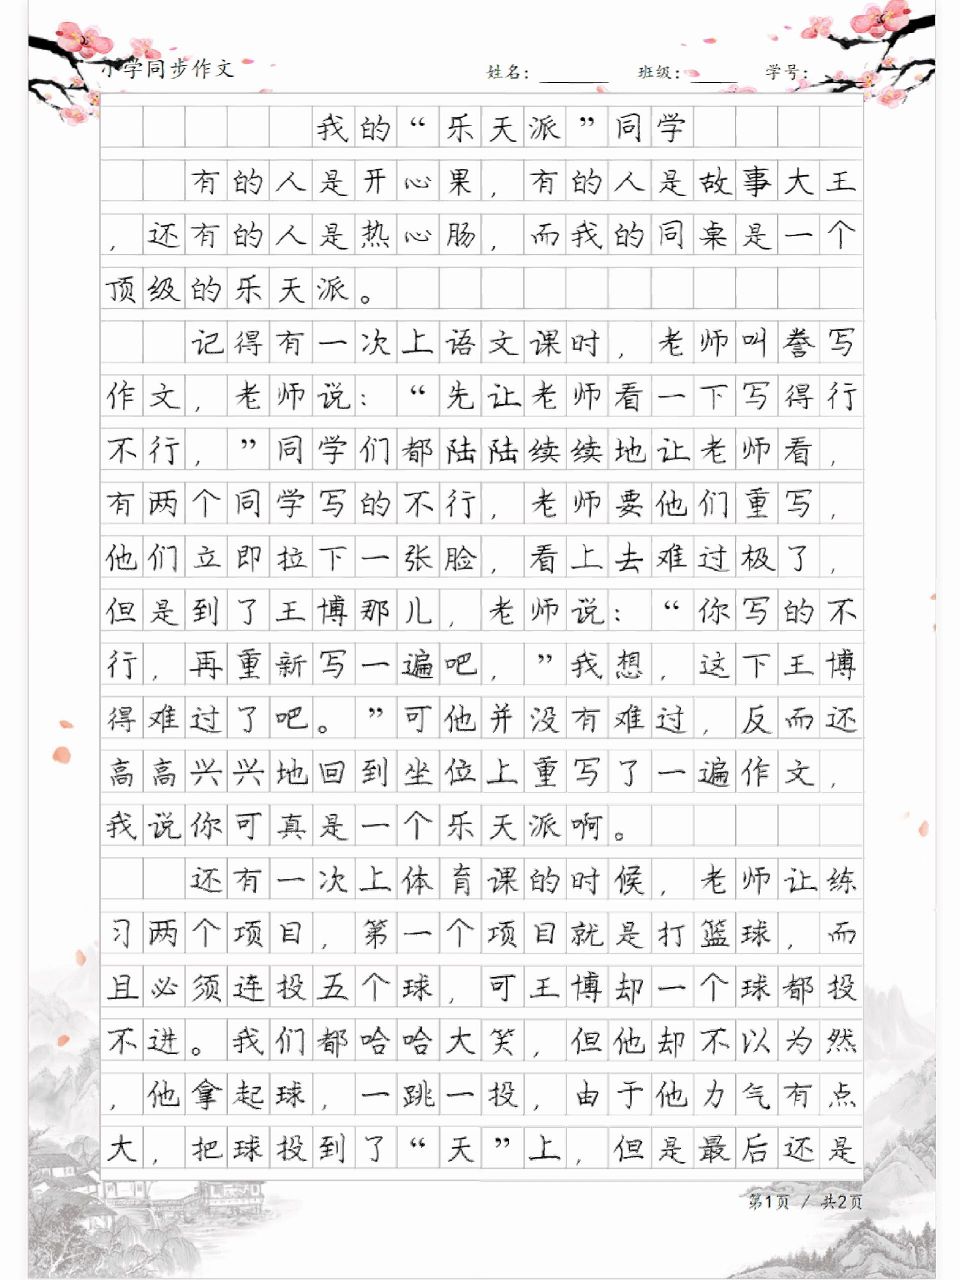 小学同步作文 姓名：______ 班级：______ 学号：______
我的“乐天派”同学
有的人是开心果，有的人是故事大王
，还有的人是热心肠，而我的同桌是一个
顶级的乐天派。
记得有一次上语文课时，老师叫誊写
作文，老师说：“先让老师看一下写得行
不行，”同学们都陆陆续续地让老师看，
有两个同学写的不行，老师要他们重写，
他们立即拉下一张脸，看上去难过极了，
但是到了王博那儿，老师说：“你写的不
行，再重新写一遍吧，”我想，这下王博
得难过了吧。”可他并没有难过，反而还
高高兴兴地回到坐位上重写了一遍作文，
我说你可真是一个乐天派啊。
还有一次上体育课的时候，老师让练
习两个项目，第一个项目就是打篮球，而
且必须连投五个球，可王博却一个球都投
不进。我们都哈哈大笑，但他却不以为然
，他拿起球，一跳一投，由于他力气有点
大，把球投到了“天”上，但是最后还是
第1页 / 共2页